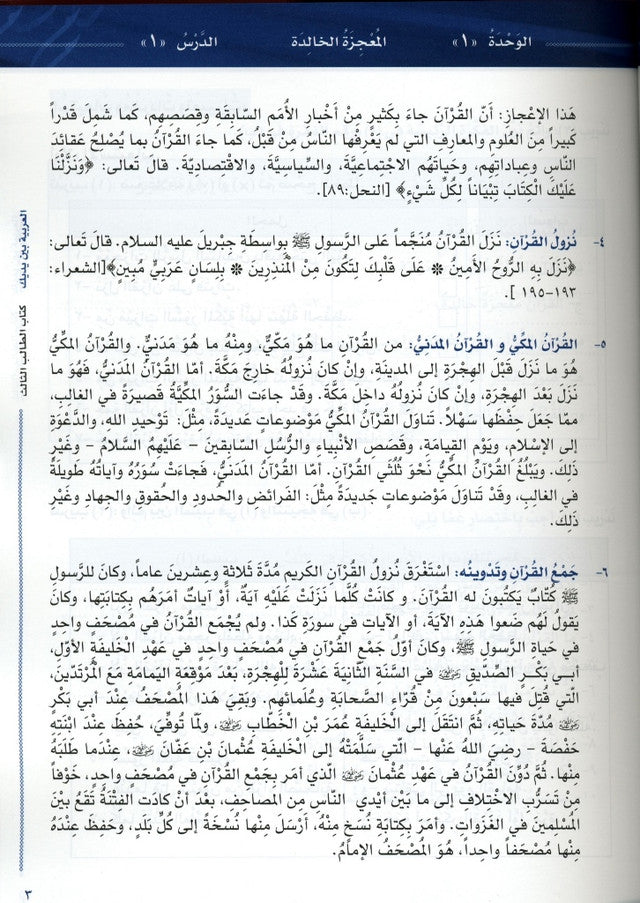 الوَحْدَةُ «١» المُعْجِزَةُ الخالِدَة الدَّرْسُ «١»
هَذا الإعْجازِ: أَنَّ القُرْآنَ جاءَ بِكَثيرٍ مِنْ أَخْبارِ الأُمَمِ السّابِقَةِ وقِصَصِهِم، كَما شَمِلَ قَدْراً
كَبيراً مِنَ العُلومِ والمَعارِفِ التي لم يَعْرِفْها النّاسُ مِنْ قَبْلُ، كَما جاءَ القُرْآنُ بما يُصْلِحُ عَقائدَ
النّاسِ وعِباداتِهِم، وحَياتَهُم الاجْتِماعِيَّةَ، والسِّياسِيَّةَ، والاقْتِصادِيَّةَ. قالَ تَعالى: ﴿وَنَزَّلْنَا
عَلَيْكَ الْكِتَابَ تِبْيَاناً لِكُلِّ شَيْءٍ﴾ [النحل:٨٩].
٤- نُزولُ القُرْآنِ: نَزَلَ القُرْآنُ مُنَجَّماً عَلى الرَّسولِ ﷺ بِواسِطَةِ جِبْريلَ عليه السلام. قالَ تَعالى:
﴿نَزَلَ بِهِ الرُّوحُ الأَمِينُ ❋ عَلَى قَلْبِكَ لِتَكُونَ مِنْ الْمُنْذِرِينَ ❋ بِلِسَانٍ عَرَبِيٍّ مُبِينٍ﴾[الشعراء:
١٩٣-١٩٥ ].
٥- القُرْآنُ المَكِّيُّ و القُرْآنُ المَدَنِيُّ: من القُرآنِ ما هُوَ مَكِّيٌّ، ومِنْهُ ما هُوَ مَدَنيٌّ. والقُرْآنُ المَكِّيُّ
هُوَ ما نَزَلَ قَبْلَ الهِجْرَةِ إلى المدينَةِ، وإنْ كانَ نُزولُهُ خارِجَ مَكَّةَ. أمّا القُرْآنُ المَدَنيُّ، فَهُوَ ما
نَزَلَ بَعْدَ الهِجْرَةِ، وإنْ كانَ نُزولُهُ داخِلَ مَكَّةَ. وقَدْ جاءَت السُّوَرُ المَكِّيَّةُ قَصيرَةً في الغالِبِ،
ممّا جَعَلَ حِفْظَها سَهْلاً. تَناوَلَ القُرْآنُ المكِّيُّ مَوْضوعاتٍ عَديدَةً، مِثْلَ: تَوْحيدِ اللهِ، والدَّعْوَةِ
إلى الإسْلامِ، ويَوْمِ القِيامَةِ، وقَصَصِ الأنْبِياءِ والرُّسُلِ السّابِقينَ – عَلَيْهِمُ السَّلامُ – وغَيْرِ
ذَلِكَ. ويَبْلُغُ القُرآنُ المكِّيُّ نَحْوَ ثُلُثَي القُرآنِ. أمّا القُرآنُ المَدَنيُّ، فَجاءَتْ سُوَرُهُ وآياتُهُ طَويلَةً
في الغالِبِ، وقَدْ تَناوَلَ مَوْضوعاتٍ جَديدَةً مثْلَ: الفَرائضِ والحُدودِ والحُقوقِ والجِهادِ وغَيْرِ
ذَلِكَ.
٦- جَمْعُ القُرْآنِ وتَدْوينُه: اسْتَغْرَقَ نُزولُ القُرْآنِ الكَريمِ مُدَّةَ ثَلاثَةٍ وعِشْرينَ عاماً، وكانَ للرَّسولِ
ﷺ كُتّابٌ يَكْتُبونَ له القُرآنَ. و كانَتْ كُلَّما نَزَلَتْ عَلَيْهِ آيَةٌ، أَوْ آياتٌ أمَرَهُم بِكِتابَتِها، وكانَ
يَقولُ لَهُم ضَعوا هَذِهِ الآيَةَ، أو الآياتِ في سورَةِ كَذا. ولم يُجْمَعِ القُرآنُ في مُصْحَفٍ واحِدٍ
في حَياةِ الرَّسولِ ﷺ، وكانَ أوَّلُ جَمْعِ القُرآنِ في مُصْحَفٍ واحِدٍ في عَهْدِ الخَليفَةِ الأوَّلِ،
أبي بَكْرٍ الصِّدّيقِ رضي الله عنه في السَّنَةِ الثّانِيَةَ عَشْرَةَ لِلْهِجْرَةِ، بَعْدَ مَوْقِعَةِ اليَمامَةِ مَعَ المُرْتَدّينَ،
الّتي قُتِلَ فيها سَبْعونَ مِنْ قُرّاءِ الصَّحابَةِ وعُلَمائهم. وبَقِيَ هَذا المُصْحَفُ عِنْدَ أبي بَكْرٍ
رضي الله عنه مُدَّةَ حَياتِهِ، ثُمَّ انْتَقَلَ إلى الخَليفَةِ عُمَرَ بْنِ الخَطّابِ رضي الله عنه، ولمّا تُوفِّيَ، حُفِظَ عِنْدَ ابْنَتِه
حَفْصَةَ – رضِيَ اللهُ عَنْها – الّتي سَلَّمَتْهُ إلى الخَليفَةِ عُثْمانَ بْنِ عَفّانَ رضي الله عنه، عِنْدَما طَلَبَهُ
مِنْها. ثُمَّ دُوِّنَ القُرآنُ في عَهْدِ عُثْمانَ رضي الله عنه الّذي أمَرَ بِجَمْعِ القُرآنِ في مُصْحَفٍ واحِدٍ، خَوْفاً
مِنْ تَسَرُّبِ الاخْتِلافِ إلى ما بَيْنَ أيْدي النّاسِ مِن المصاحِفِ، بَعْدَ أنْ كادَت الفِتْنَةُ تَقَعُ بيْنَ
المُسْلِمينَ في الغَزَواتِ. وأمَرَ بِكِتابَةِ نُسَخٍ مِنْهُ، أرْسَلَ مِنْها نُسْخَةً إلى كُلِّ بَلَدٍ، وحَفِظَ عِنْدَهُ
مِنْها مُصْحَفاً واحِداً، هُوَ المُصْحَفُ الإمامُ.
العربية بين يديك كتاب الطالب الثالث
٣